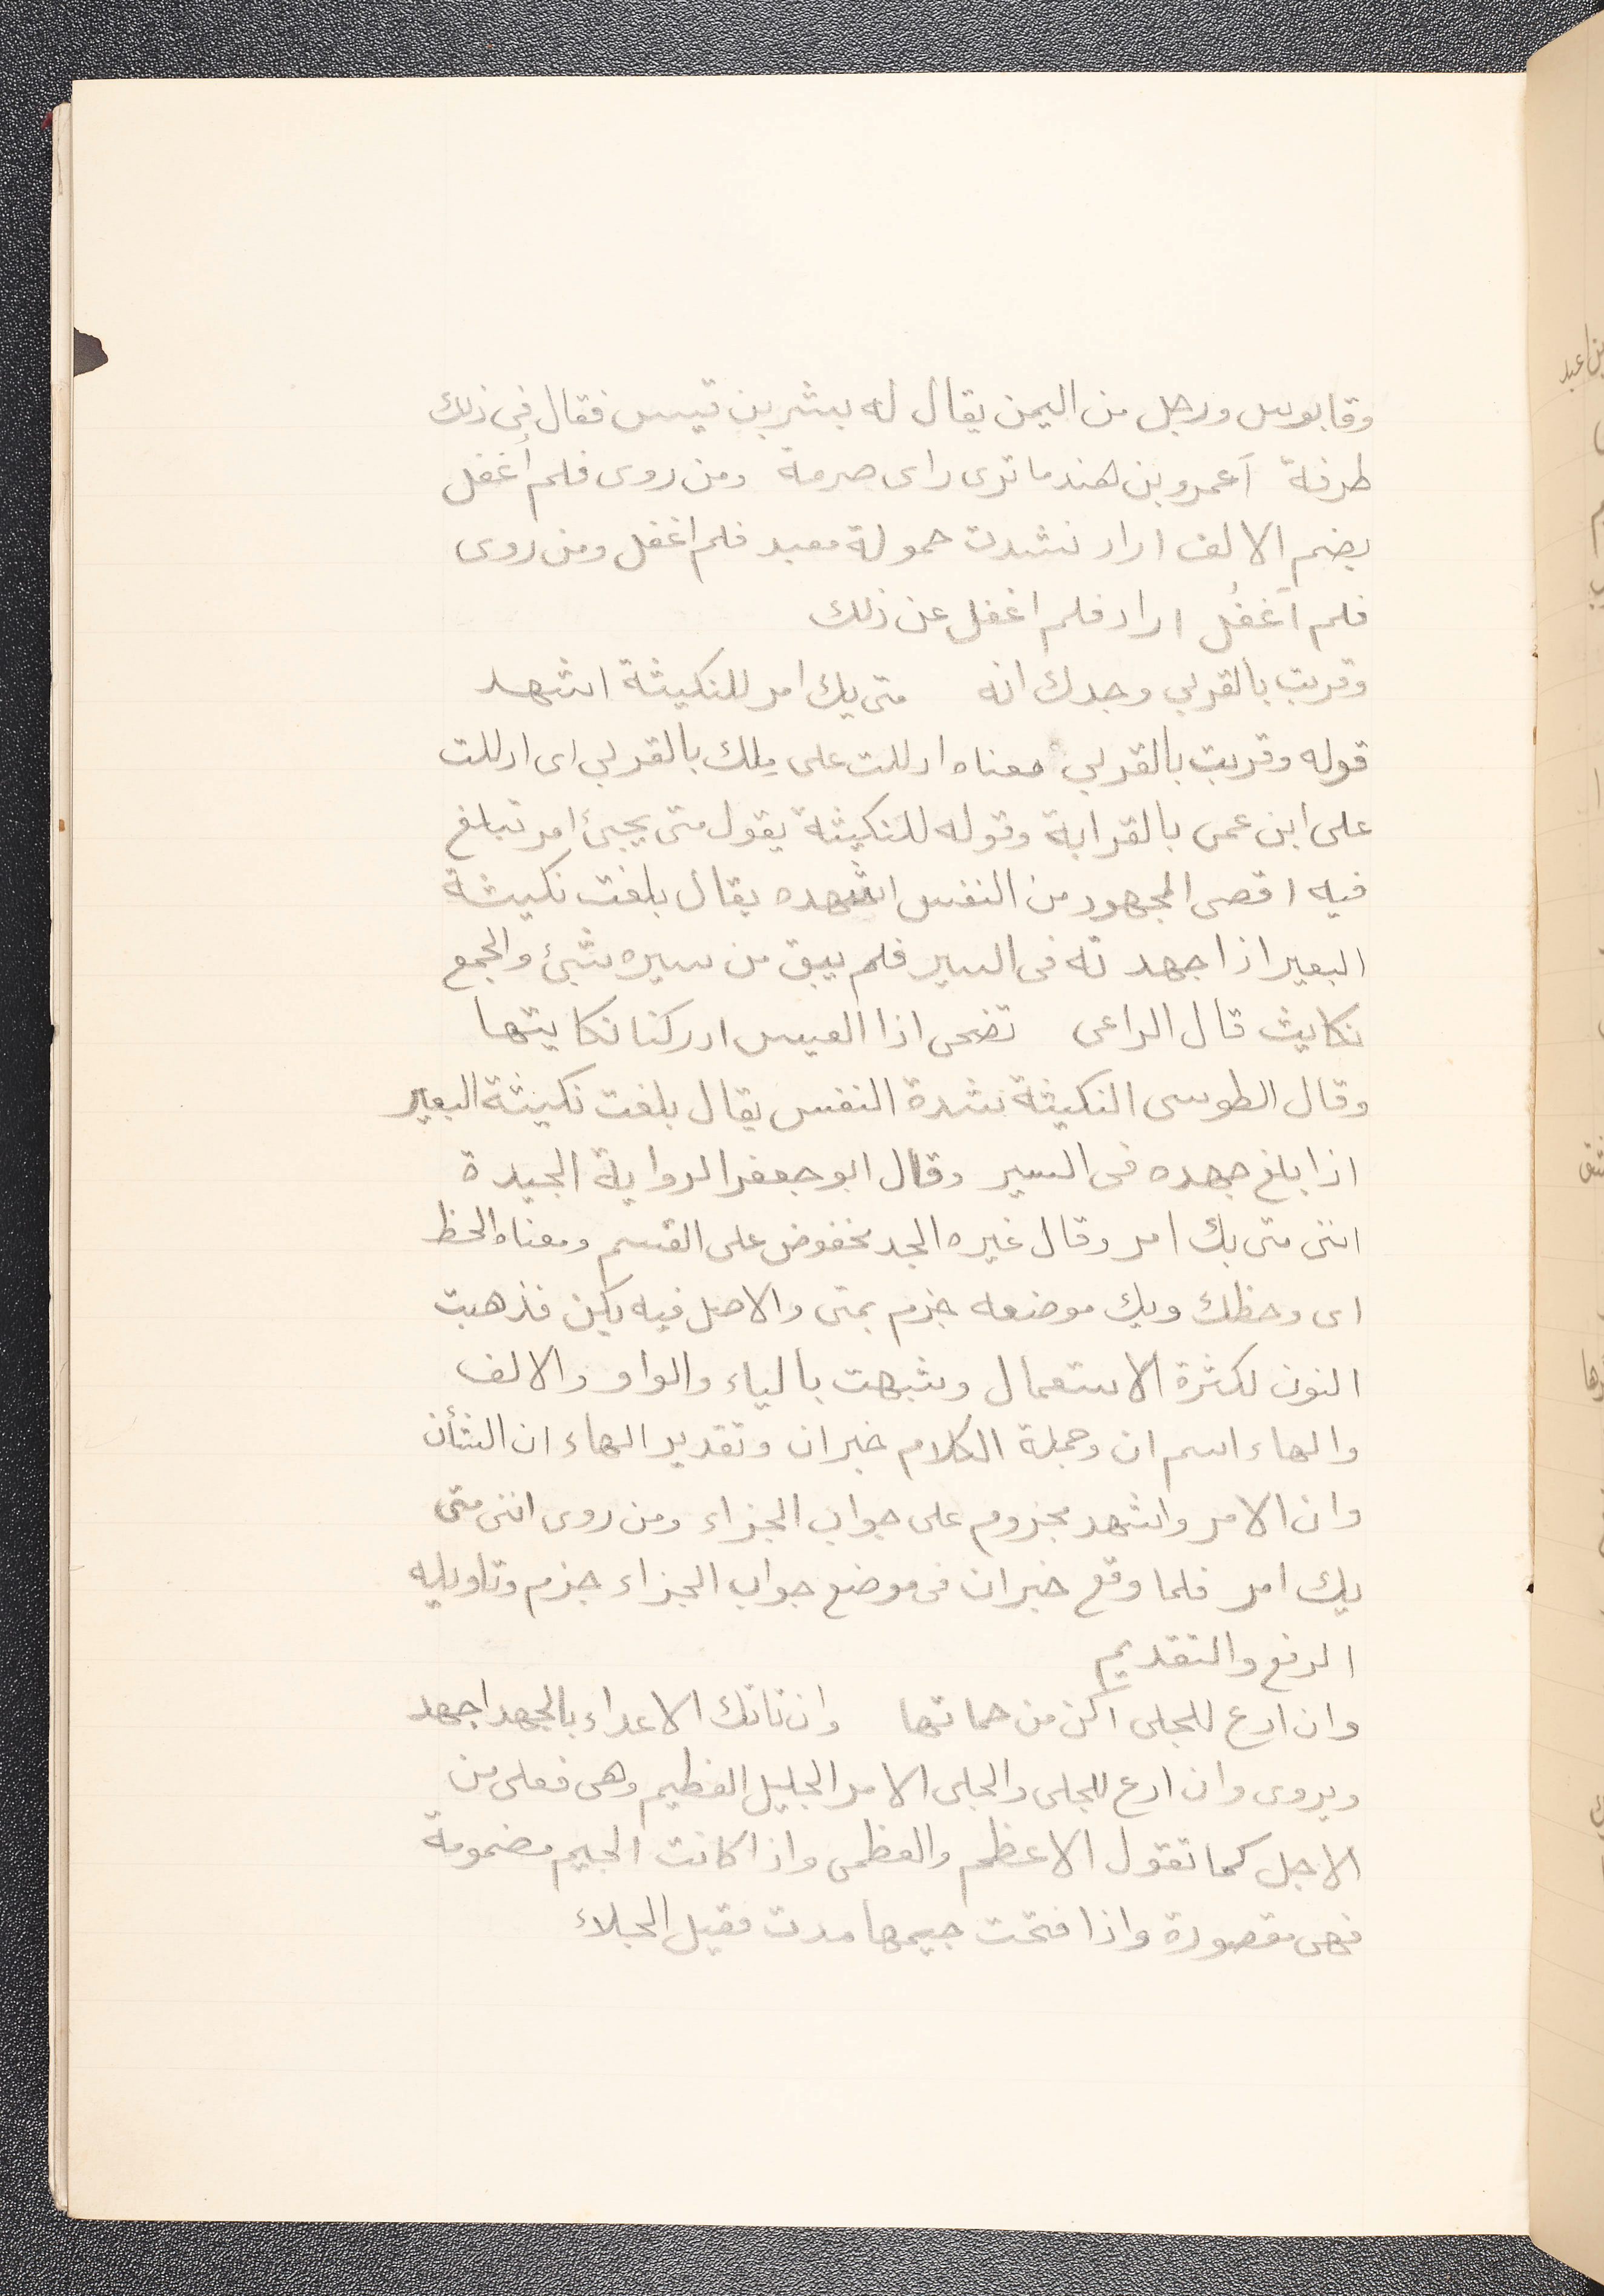 وقابوس ورجل من اليمن يقال له بشر بن قيس فقال فى ذلك
طرفة أعمرو بن هند ما ترى راى صرمة ومن روى فلم أغفل
بضم الالف اراد نشدت حمولة معبد فلم اغفل ومن روى
فلم أَغفُل اراد فلم اغفل عن ذلك
وقربت بالقربي وجدك انه متى يك امر للنكيثة اشهد
قوله وقربت بالقربي معناه ادللت على ملك بالقربي اى ادللت
على ابن عمى بالقرابة وقوله للنكيثة يقول متى يجيئ امر تبلغ
فيه اقصى المجهود من النفس اشهده يقال بلغت نكيثة
البعير اذا جهدته فى السير فلم يبق من سيره شيئ والجمع
نكايث قال الراعى تضحى اذا العيس ادركنا نكايتها
وقال الطوسى النكيثة شدة النفس يقال بلغت نكيثة البعير
اذا بلغ جهده فى السير وقال ابو جعفر الرواية الجيدة
اننى متى يك امر وقال غيره الجد مخفوض على القسم ومعناه الحظ
اى وحظك ويك موضعه جزم بمتى والاصل فيه يكن فذهبت
النون لكثرة الاستعمال وشبهت بالياء والواو والالف
والهاء اسم ان وجملة الكلام خبران وتقدير الهاء ان الشأن
وان الامر واشهد مجزوم على جواب الجزاء ومن روى اننى متى
يك امر فلما وقع خبران فى موضع جواب الجزاء جزم وتاويله
الرفع والتقديم
وان ادع للجلى اكن من حماتها وان تاتك الاعداء بالجهد اجهد
ويروى وان ادع للجلى والجلى الامر الجليل العظيم وهى فعلى من
الاجل كما تقول الاعظم والعظمى واذا كانت الجيم مضمومة
فهى مقصورة واذا فتحت جيمها مدت فقيل الجلاء